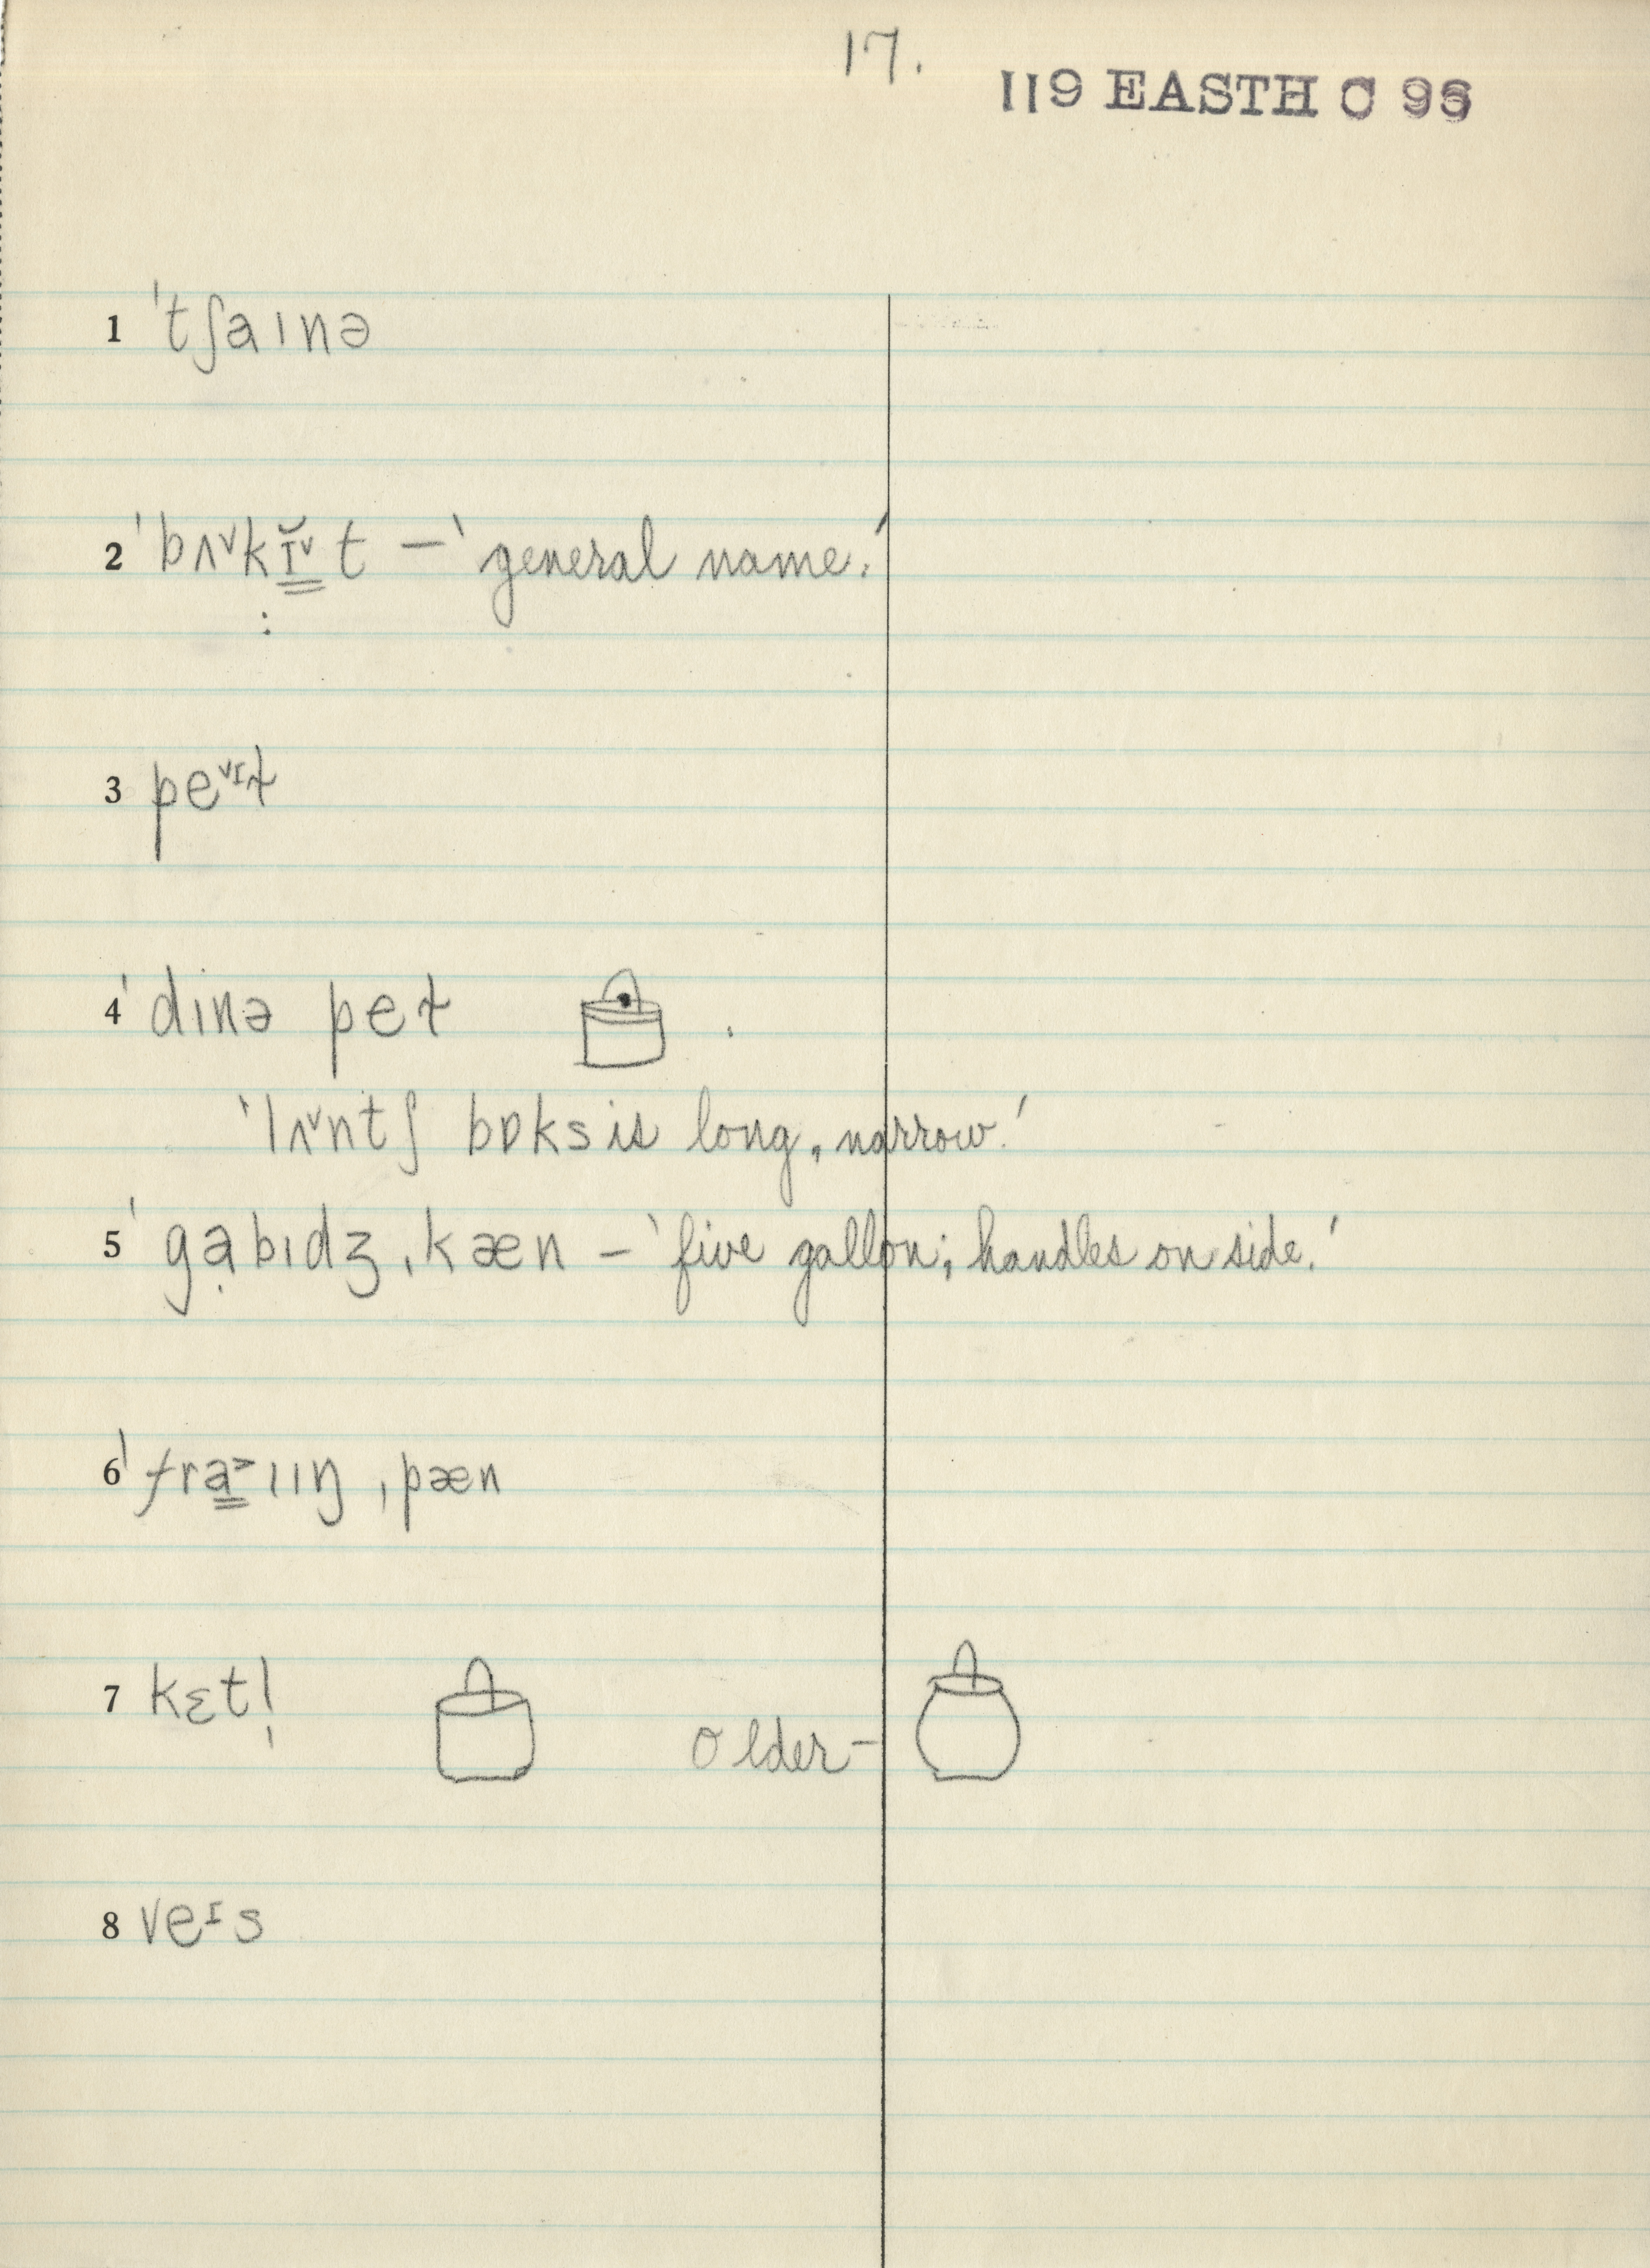 17.
119 EASTH C
1 ˈtʃaɪnə
2 ˈbʌ˅kɪ̆˅t — 'general name.'
3 pe˅ɪɫ
4 ˈdɪnə peɫ
'lʌ˅ntʃ bɒks is long, narrow.'
5 ˈgạbɪdʒ ˌkæn – 'five gallon; handles on side.'
6 ˈfra̳˃ɪɪŋ ˌpæn
7 kɛtl̩
older –
8 veᶦs